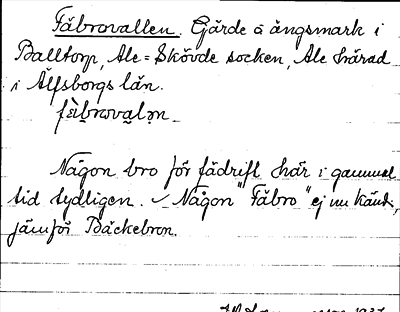 Fäbrovallen. Gärde å ängsmark i
Balltorp, Ale=Skövde socken, Ale härad
i Älfsborgs län.
fæ̀brovalən
Någon bro för fädrift här i gammal
tid tydligen. Någon "Fäbro" ej nu känd,
jämför Bäckebron.